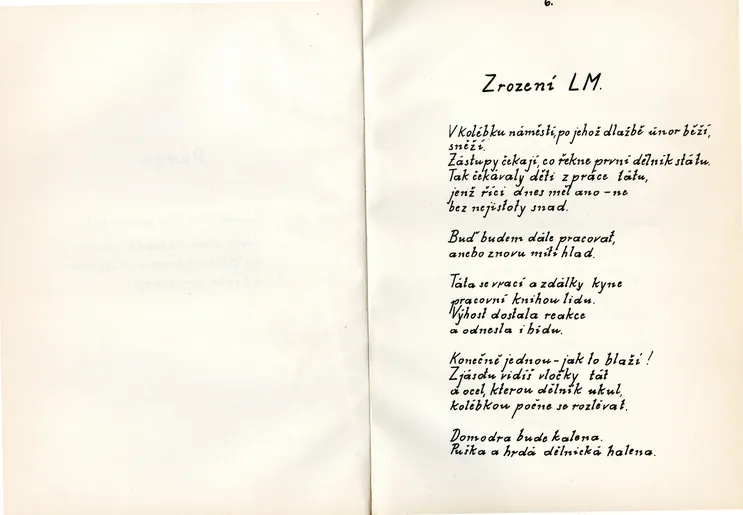 6.
Zrození LM.
V kolébku náměstí, po jehož dlažbě únor běží,
sněží.
Zástupy čekají, co řekne první dělník státu.
Tak čekávaly děti z práce tátu,
jenž říci dnes měl ano - ne
bez nejistoty snad.
Buď budem dále pracovat,
anebo znovu míti hlad.
Táta se vrací a zdálky kyne
pracovní knihou lidu.
Výhost dostala reakce
a odnesla i bídu.
Konečně jednou - jak to blaží!
Zjásotu vidíš vločky tát
a ocel, kterou dělník ukul,
kolébkou počne se rozlévat.
Domodra bude kalena.
Puška a hrdá dělnická halena.